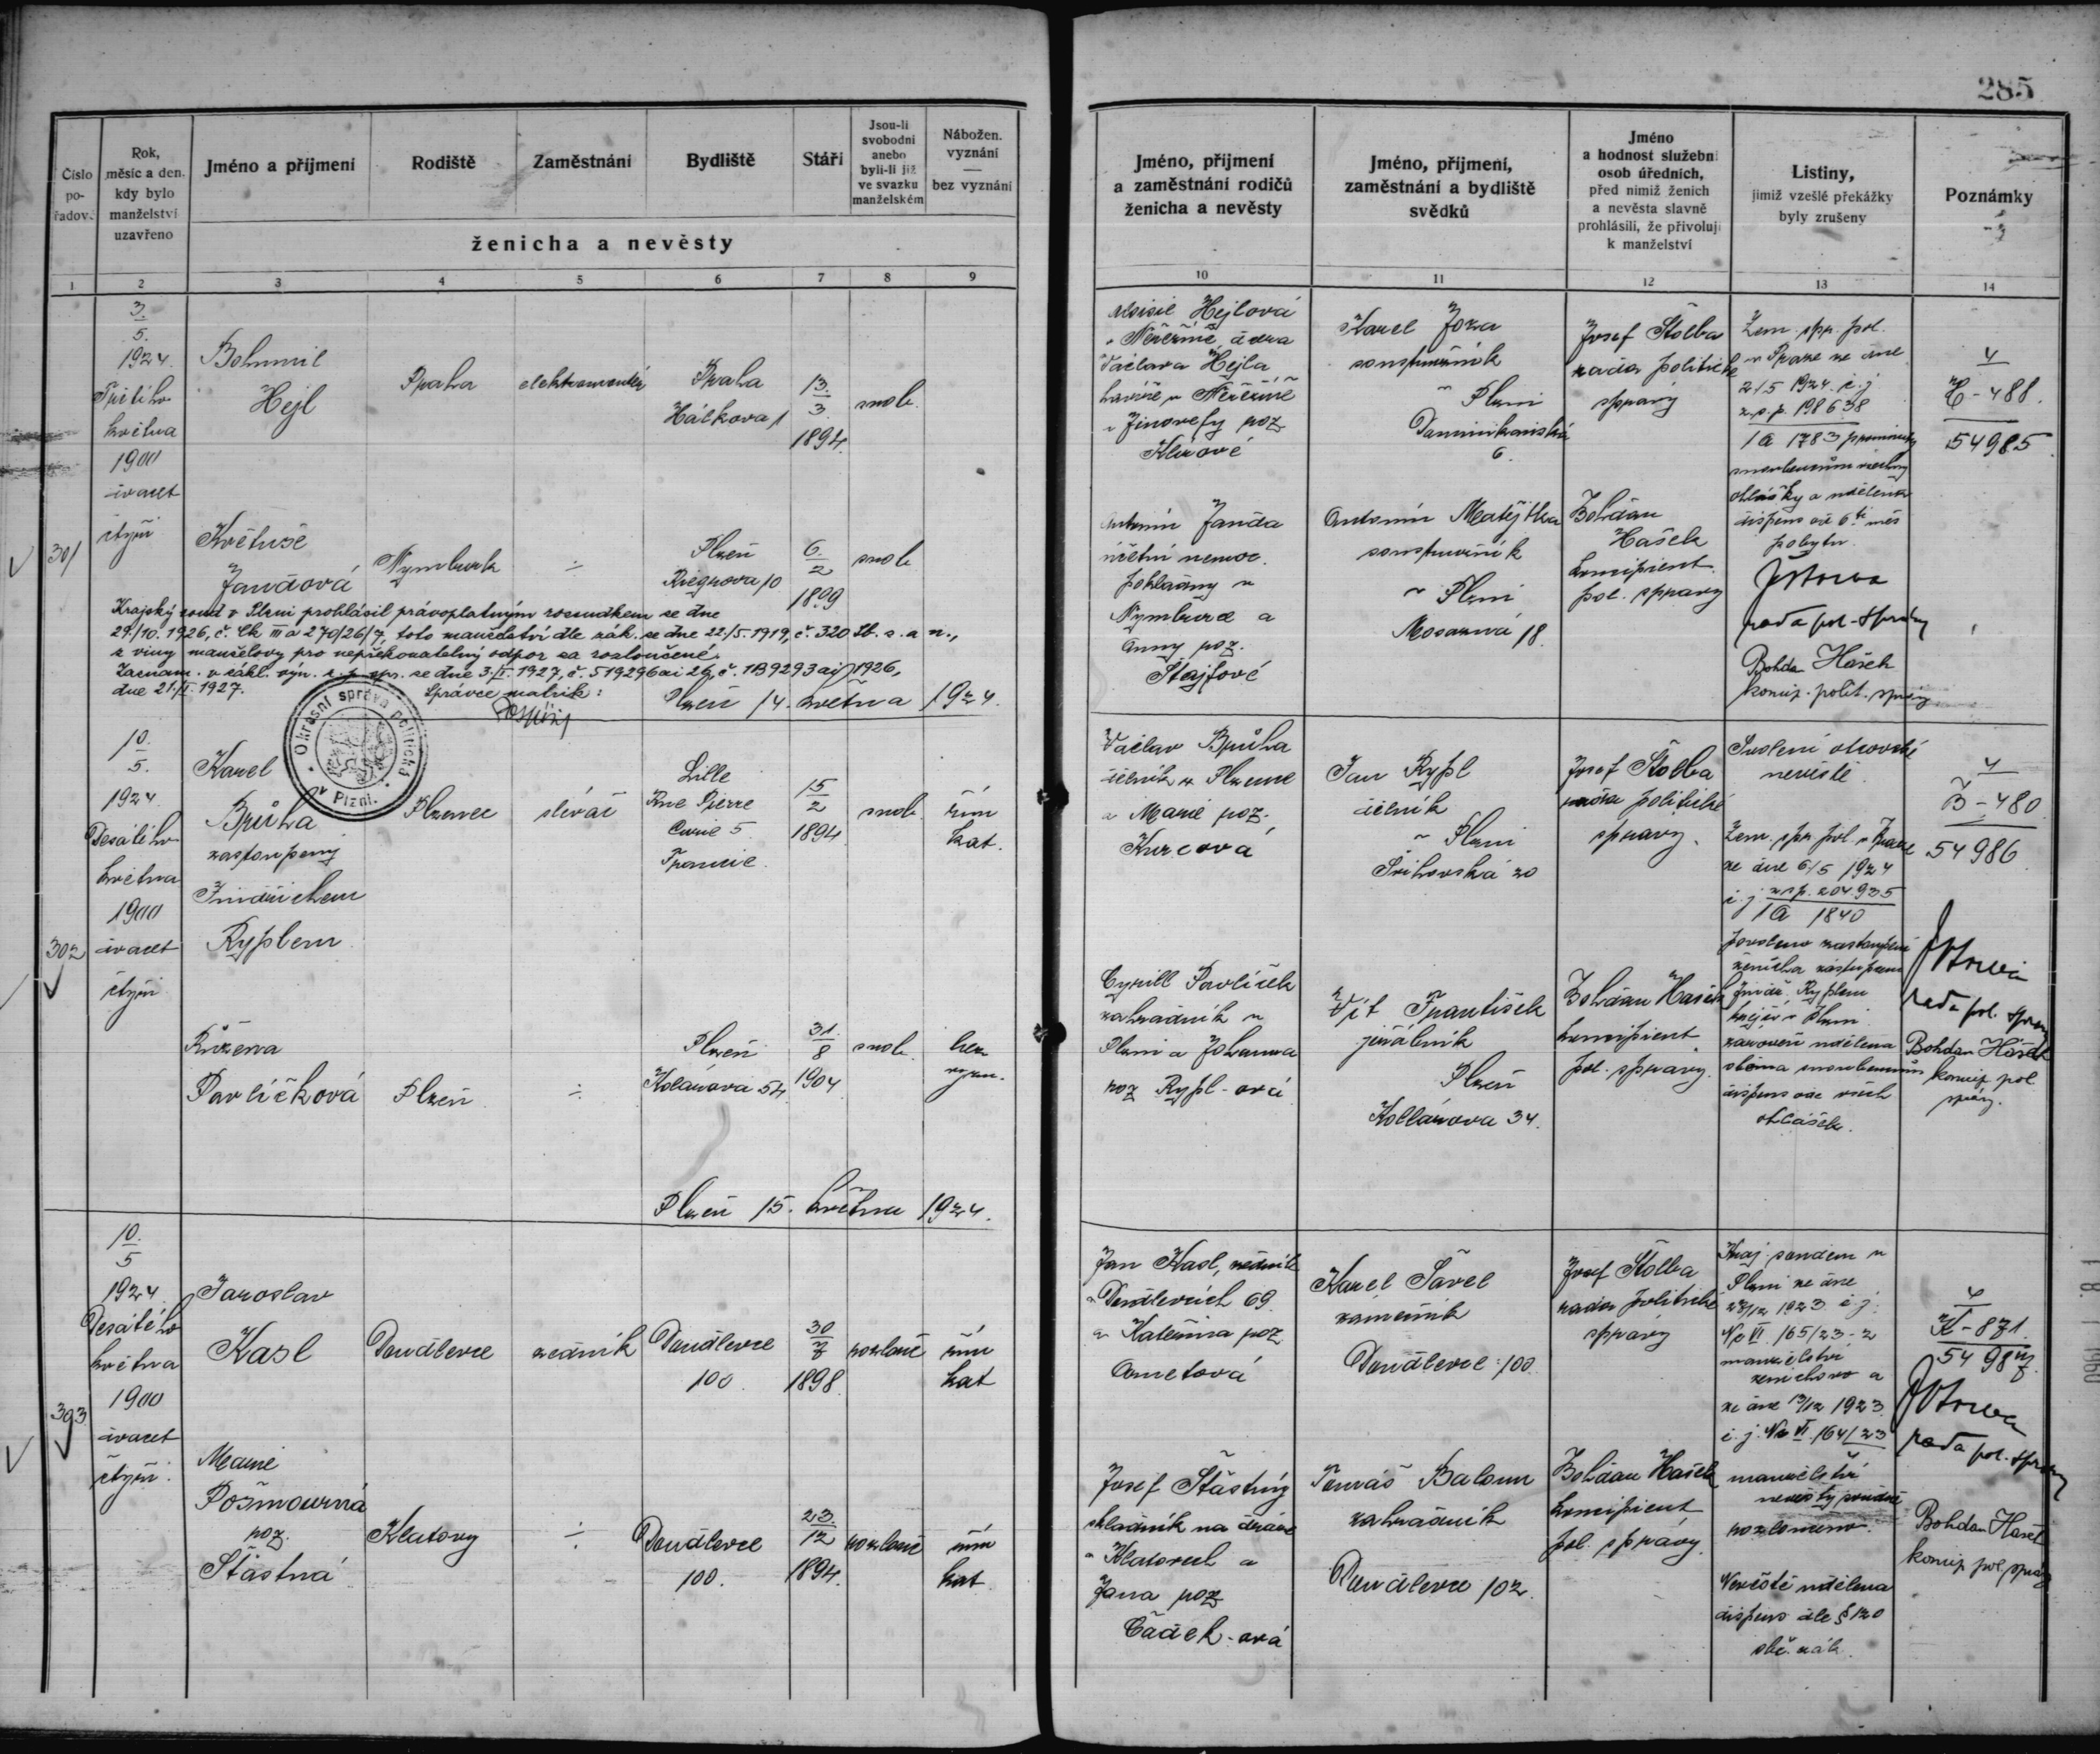 285
Číslo po-řadov.
Rok, měsíc a den, kdy bylo manželství uzavřeno
Jméno a příjmení
Rodiště
Zaměstnání
Bydliště
Stáří
Jsou-li svobodni anebo byli-li již ve svazku manželském
Nábožen. vyznání — bez vyznání
ženicha a nevěsty
Jméno, příjmení a zaměstnání rodičů ženicha a nevěsty
Jméno, příjmení, zaměstnání a bydliště svědků
Jméno a hodnost služební osob úředních, před nimiž ženich a nevěsta slavně prohlásili, že přivolují k manželství
Listiny, jimiž vzešlé překážky byly zrušeny
Poznámky
1 2 3 4 5 6 7 8 9 10 11 12 13 14
301
3.
5.
1924
Třetího
května
1900
dvacet
čtyři
Bohumil
Hejl
Praha
elektromontér
Praha
Hálkova 1
13.
3.
1894.
svob.
Hejlová
Václava Hejla
poz.
Karel
soustružník
v Plzni
Dominikánská
6.
Josef Štolba
rada politické
správy
Zem. spr. pol.
v Praze ze dne
2/5 1924 č. j.
z.s.p. 198638
1a 1783
snoubencům
ohlášky a udělena
dispens od 6ti měs
pobytu.
rada pol. správy
Bohdan Hašek
koncip. polit. správy
4
H - 488.
54985
Květuše
Jandová
Nymburk
÷
Plzeň
Riegrova 10
6
2
1899
svob
Antonín Janda
účetní nemoc.
pokladny v
Nymburce a
Anny poz.
Antonín Matějka
soustružník
v Plzni
18.
Bohdan
Hašek
koncipient
pol. správy
Krajský soud v Plzni prohlásil právoplatným rozsudkem ze dne
29./10. 1926, č. Ck III a 270/26/7, toto manželství dle zák. ze dne 22./5. 1919, č. 320 Sb. z. a n.,
z viny manželovy pro nepřekonatelný odpor za rozloučené.
Zaznam. v zákl. výn. z. p. spr. ze dne 3./I. 1927, č.
dne 21./I. 1927.
Správce matrik:
Okresní správa politická v Plzni.
Plzeň 14. května 1924.
302
10.
5.
1924
Desátého
května
1900
dvacet
čtyři
Karel
Brůha
zastoupený
Jindřichem
Ryplem
Plzenec
slévač
Lille
Rue Pierre
Curie 5
Francie.
15
2
1894
svob.
řím
kat.
Václav Brůha
dělník v Plzenci
a Marie poz.
Kurcová
Jan Rypl
dělník
v Plzni
20
Josef Štolba
rada politické
správy.
Svolení otcovské
nevěstě.
Zem. spr. pol. v Praze
ze dne 6/5 1924
č. j. z.s.p. 204.935
1a 1840
povoleno zastoupení
ženicha zástupcem
Jindř. Ryplem
krejčí v Plzni
zároveň udělena
oběma snoubencům
dispens ode všech
ohlášek.
4
B - 480
54986
rada pol. správy
Bohdan Hašek
koncip. pol.
správy.
Růžena
Pavlíčková
Plzeň
÷
Plzeň
Kolárova 54
31.
8
1904
svob.
bez
vyzn.
Cyrill Pavlíček
zahradník v
Plzni a Johanna
roz Rypl-ová
Vít František
jeřábník
Plzeň
Kollárova 34.
Bohdan Hašek
koncipient
pol. správy.
Plzeň 15. května 1924.
303
10.
5
1924
Desátého
května
1900
dvacet
čtyři.
Jaroslav
Kasl
Doudlevce
zedník
Doudlevce
100.
30
7
1898
rozlouč
řím
kat
Jan Kasl, zedník
v Doudlevcích 69.
a Kateřina poz
Karel Šavel
zámečník
Doudlevce 100.
Josef Štolba
rada politické
správy
Kraj. soudem v
Plzni ze dne
28/12 1923 č. j.
Nc VI. 165/23-2
manželství
ženichovo a
ze dne 13/12 1923
č. j. Nc VI. 164/23
manželství
nevěsty
rozloučeno.
Nevěstě udělena
dispens dle § 120
obč. zák.
K - 871.
54987
rada pol. správy
Bohdan Hašek
koncip pol. správy
Marie
Pošmourná
roz.
Šťastná
Klatovy
÷
Doudlevce
100.
23.
12
1894.
rozlouč
řím
kat.
Josef Šťastný
skladník na dráze
v Klatovech a
Jana poz
Čadek-ová
Tomáš Baloun
zahradník
Doudlevce 102.
Bohdan Hašek
koncipient
pol. správy.